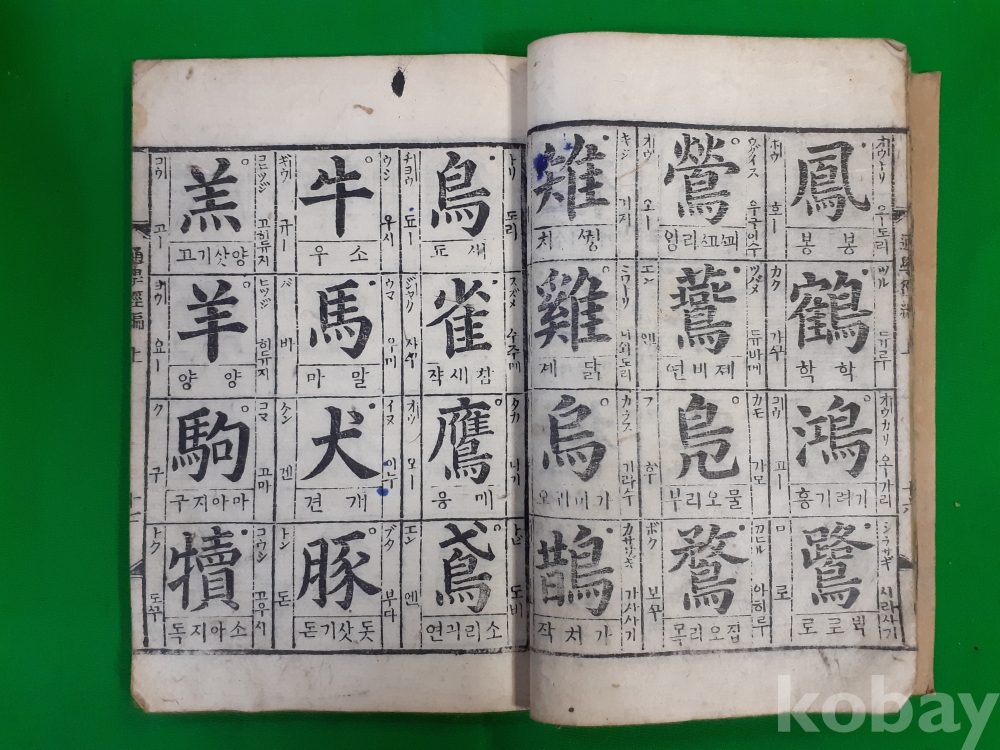 オウトリ 오ー도리
鳳
봉 봉
ホウ 호ー
ツル 듀루
鶴
학 학
カク 가꾸
オウカリ 오ー가리
鴻
기려기홍
コウ 고ー
シラサギ 시라사기
鷺
빅로로
ロ 로
ウグイス 우구이수
鶯
꾀꼬리잉
オウ 오ー
ツバメ 듀바메
鷰
제비연
エン 엔
カモ 가모
鳧
물오리부
フ 후
アヒル 아히루
鶩
집오리목
ボク 보꾸
キジ 기지
雉
씽 치
ニワトリ 니와도리
雞
닭 계
カラス 가라수
烏
가마귀오
カササギ 가사사기
鵲
가치작
トリ 도리
鳥
새 됴
チヨウ 됴ー
スズメ 수주메
雀
참새쟉
ジヤク 자꾸
タカ 다가
鷹
매 응
オウ 오ー
トビ 도비
鳶
소리긔연
エン 엔
ウシ 우시
牛
소 우
ギウ 규ー
ウマ 우마
馬
말 마
バ 바
イヌ 이누
犬
개 견
ケン 겐
ブタ 부다
豚
돗삿기돈
トン 돈
コヒツジ 고히듀지
羔
양삿기고
コウ 고ー
ヒツジ 히듀지
羊
양 양
ヨウ 요ー
コマ 고마
駒
마아지구
ク 구
コウシ 고우시
犢
소아지독
トク 도꾸
kobay